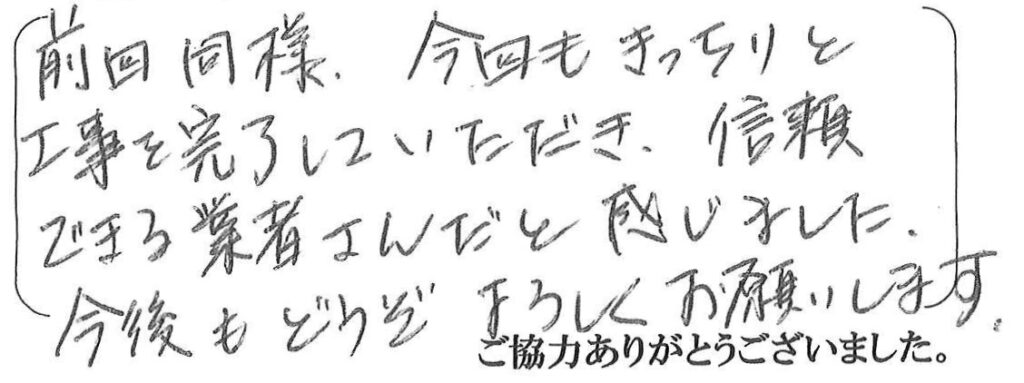 前回同様、今回もきっちりと
工事を完了していただき、信頼
できる業者さんだと感じました。
今後もどうぞよろしくお願いします。
ご協力ありがとうございました。